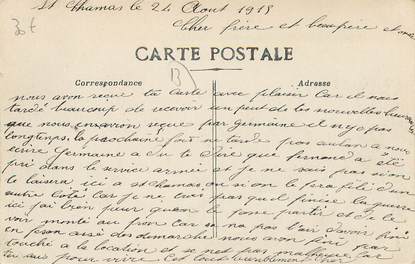 30 €
St Chamas le 24 Aout 1918
Cher frère et beaufrère et
CARTE POSTALE
Correspondance
Adresse
13
nous avon reçue ta carte avec plaisir car il nou
tardé beaucoup de recevoir un peut de tes nouvelles
que nous en avron reçue par Germaine et n'y a pas
longtemps la prochaine fois ne tarde pas autan a nou
ecrire Germaine a du te dire que fernand a été
pri dans le service armée et je ne sais pas si on
le laisera ici a st chamas ou si on le fera filé d'un
autre coté car je ne croi pas quil finise la guerre
ici jai bien peur quon le fasse partir et de le
voir monté au fron car sa na pas l'air d'avoir fini
en fesan assé des demarches nous avon fini par
touché a la location et se nes pas malheureu car
au
pour vivre cet tout